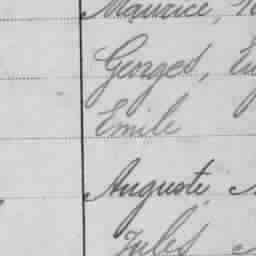 Maurice,
Georges, Eug
Emile
Auguste,
Jules